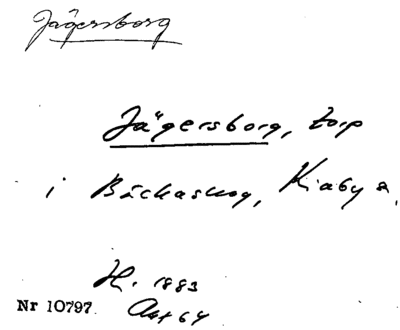 Jägersborg
Jägersborg, torp
i Bäckaskog, Kiaby s.
H. 1883
Nr 10797.